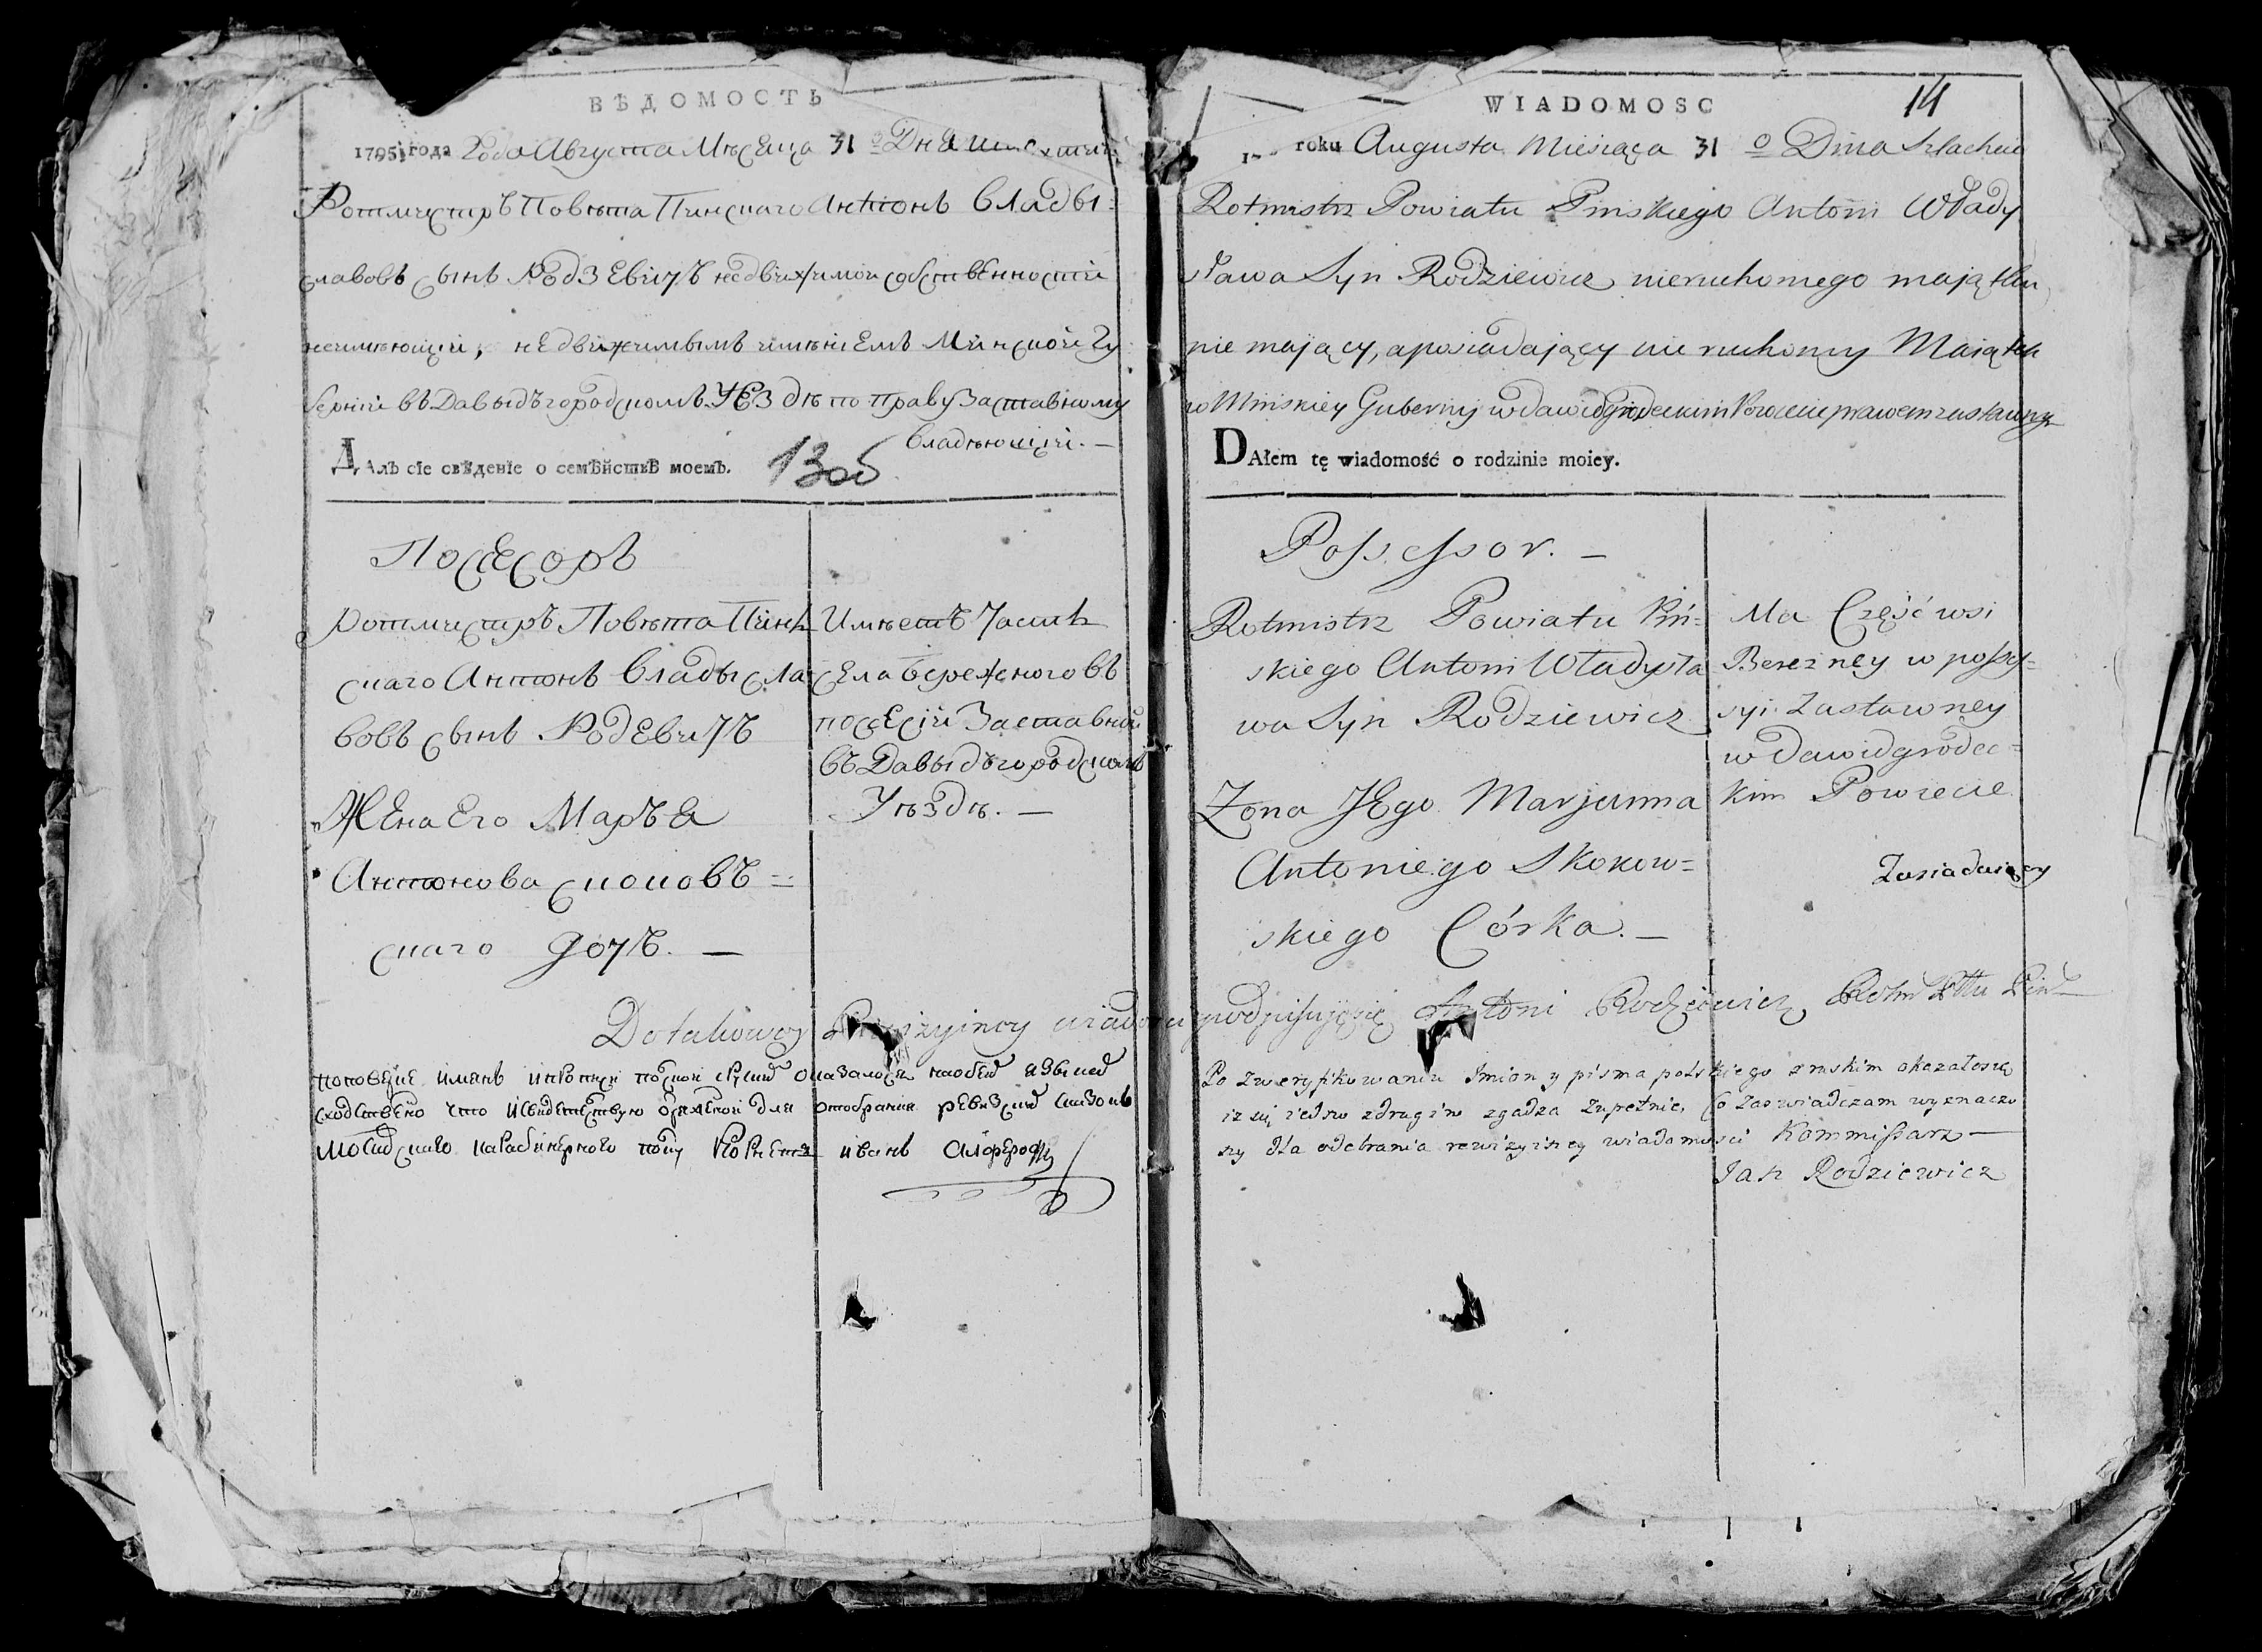 ВѢДОМОСТЬ
1795 года Года Августа Мѣсеца 31 о Дня
Ротмистръ Повѣта Пинскаго Антонъ Влады=
славовъ сынъ Родзевичъ недвижимои собственностии
неимѣющіи, недвижимымъ имѣніемъ Минской Гу
берніи въ Давыдъгородскомъ Уездѣ по праву Заставному
Владѣющіи. —
ДАлъ сіе свѣденіе о семѣйствѣ моемъ.
13об
Посесоръ
Ротмистръ Повѣта Пинъ
скаго Антонъ Владысла
вовъ сынъ Родевичъ
Жена Его Маръя
Антонова скоковъ=
скаго дочъ. —
Имѣетъ Часть
села Бережного въ
посесіи Заставнои
въ Давыдъгородскомъ
Уѣздѣ. —
Do takowey wiadom
поповѣрке имянъ
сходствено что исвидетелствую для отобрания ревизских сказокъ
карабинерного полку Корнетъ иванъ
WIADOMOSC
14
roku Augusta Miesiąca 31 o Dnia Szlachcic
Rotmistrz Powiatu Pinskiego Antoni Włady
sława Syn Rodziewicz nieruchomego majątku
nie mający, a posiadający nie ruchomy Maiątek
w Minskiey Gubernij w dawidgrodeckim Powiecie prawem zastawnym
DAłem tę wiadomość o rodzinie moiey.
Possessor. —
Rotmistrz Powiatu Piń=
skiego Antoni Władysła
wa Syn Rodziewicz
Zona JEgo Marjanna
Antoniego Skokow=
skiego Córka. —
Ma Część wsi
Berezney w possey=
syi Zastawney
w dawidgrodec=
kim Powiecie
podpisuję się Antoni Rodziewicz Rotm Pttu Piń
Po zweryfikowaniu Imion y pisma polskiego z ruskim okazałosię
iz się iedno zdrugim zgadza zupełnie, Co zaswiadczam wyznaczo
ny dla odebrania rewizyiney wiadomosci Kommissarz —
Jan Rodziewicz